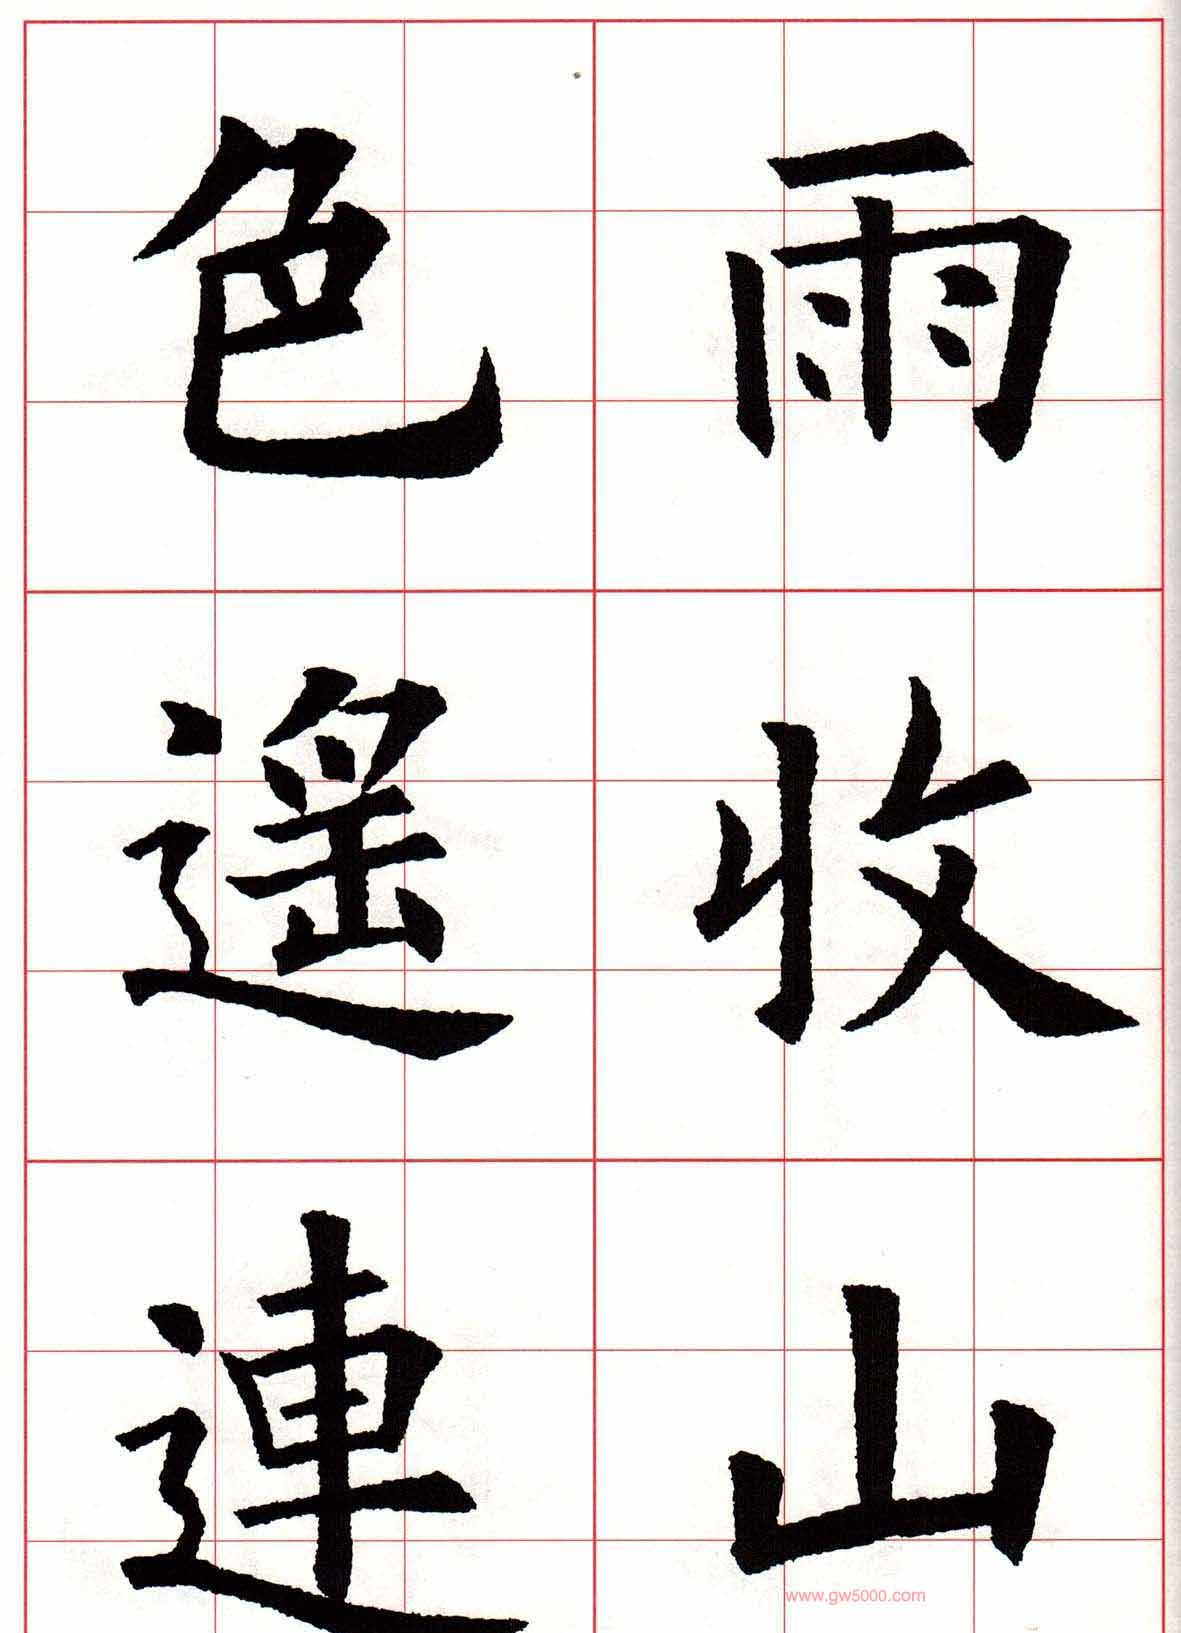 雨收山
色遥連
www.gw5000.com